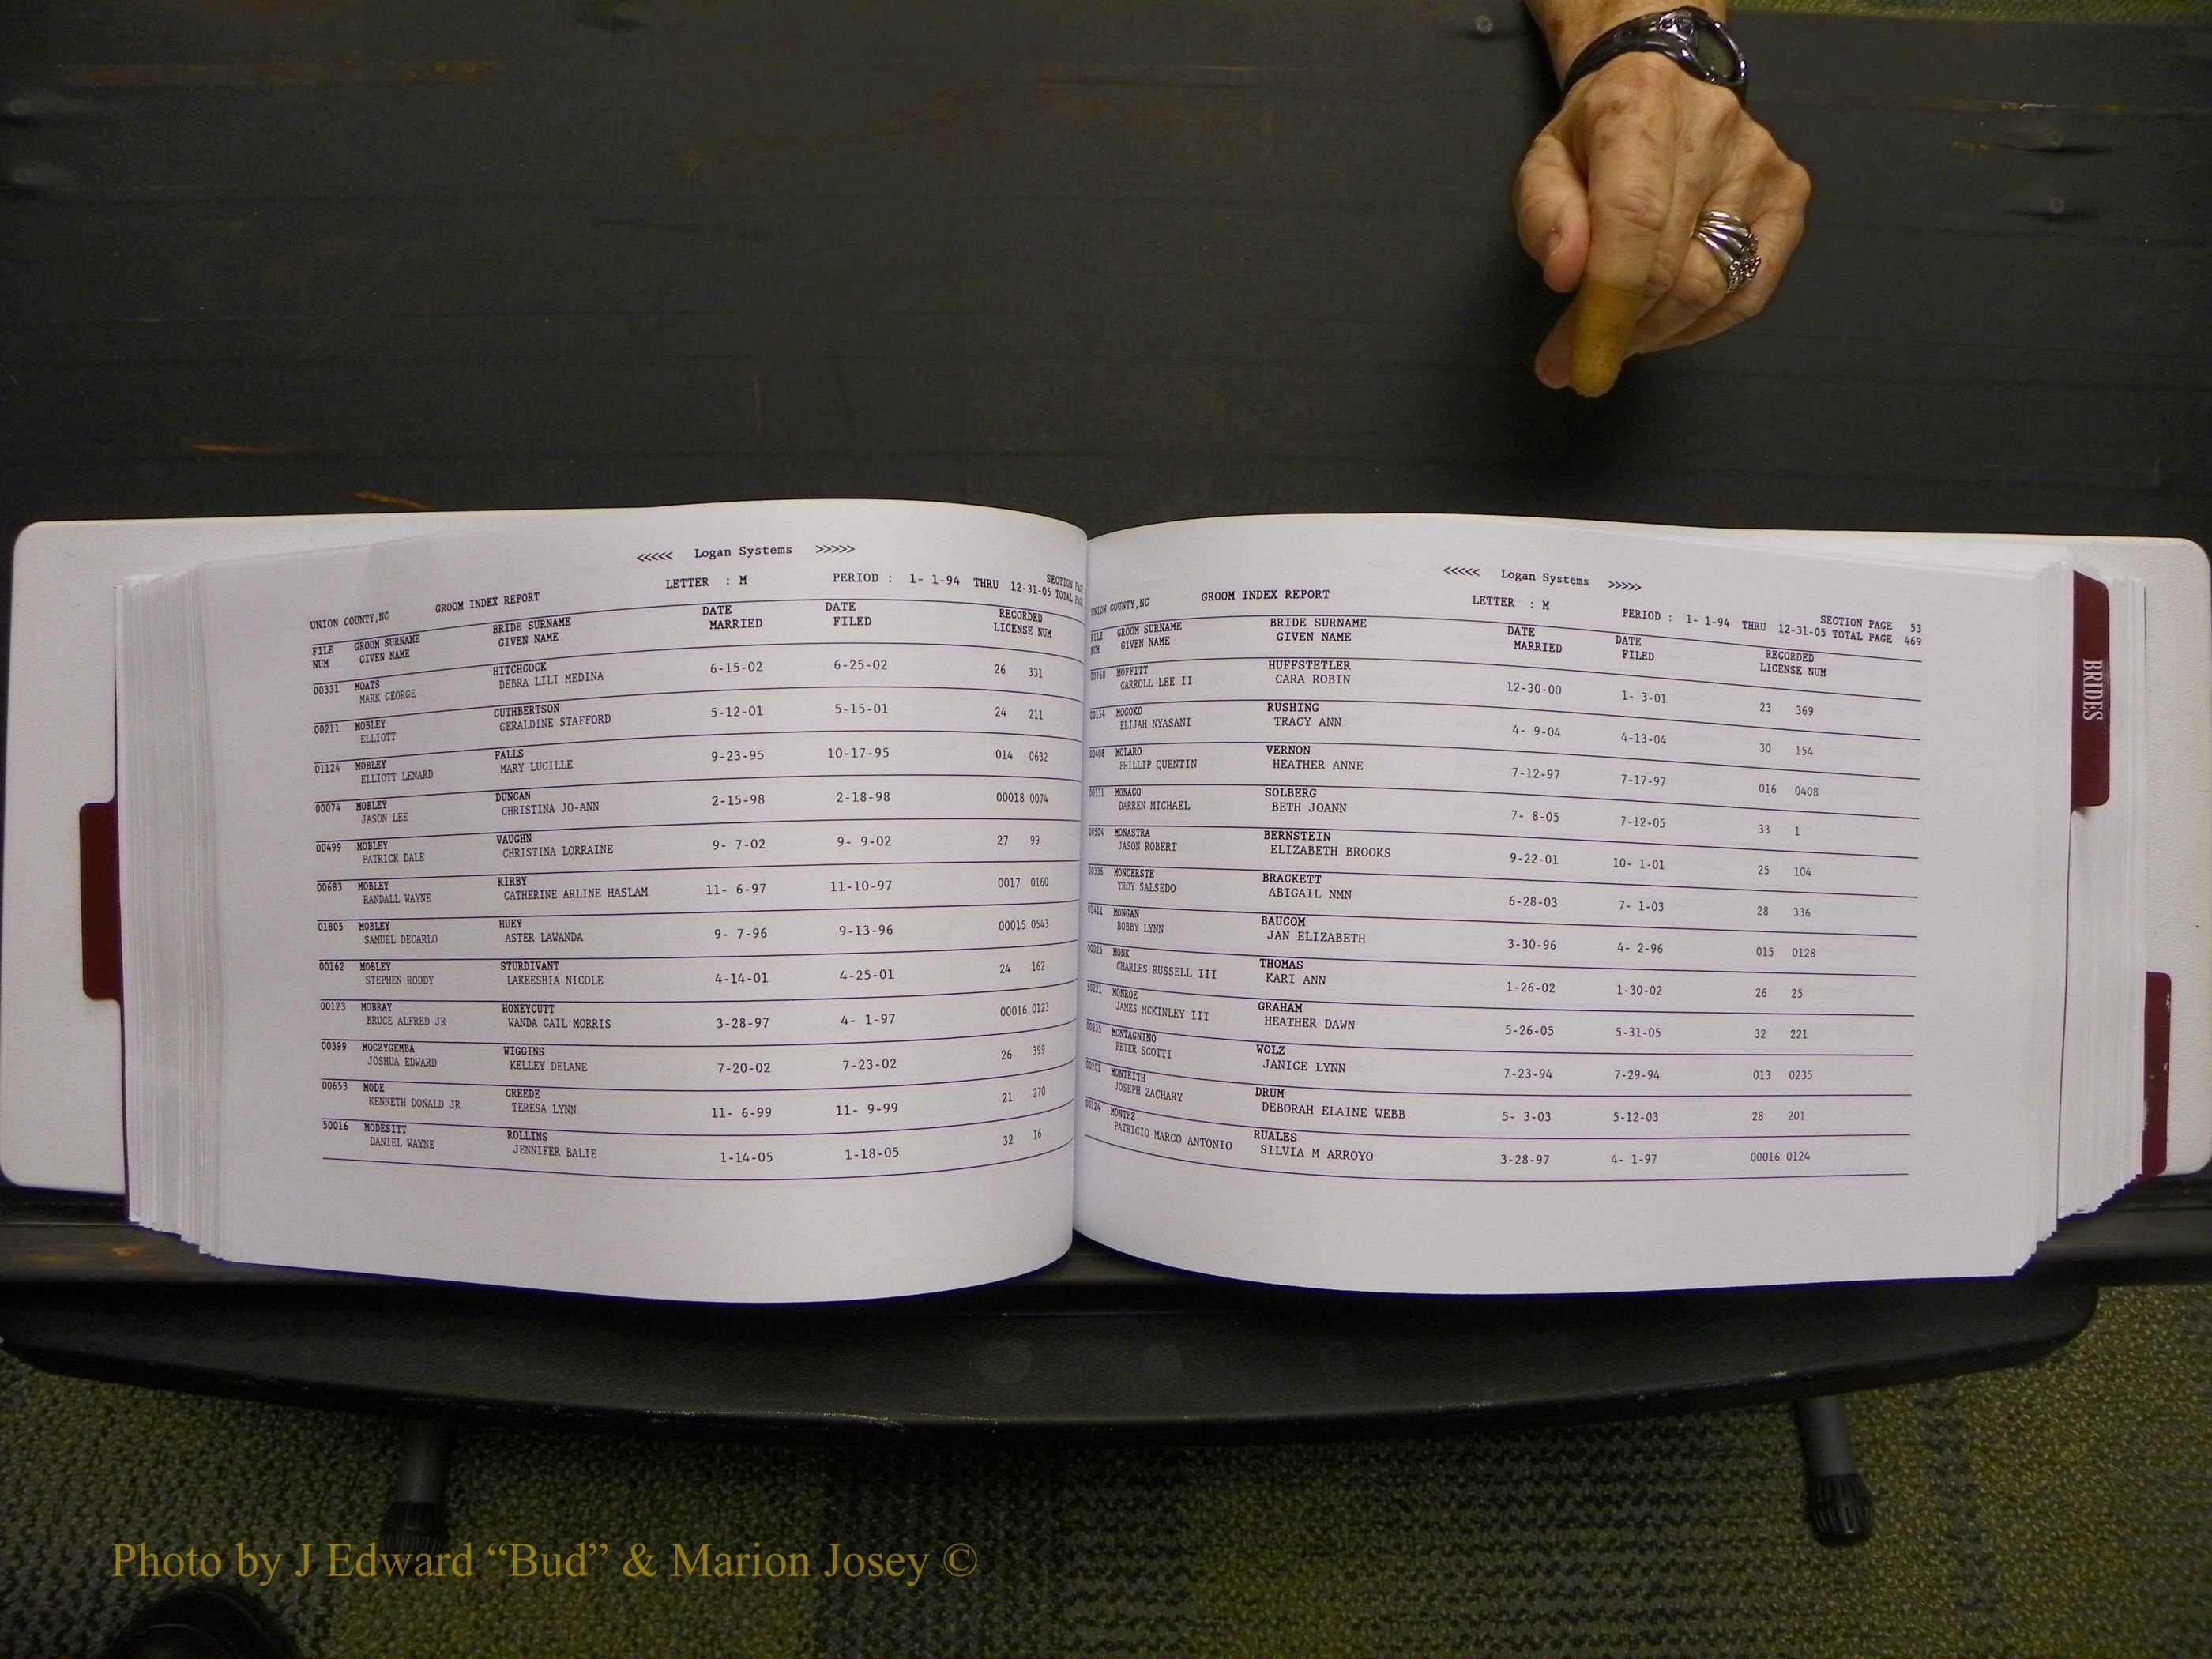 <<<<< Logan Systems >>>>>
UNION COUNTY,NC GROOM INDEX REPORT LETTER : M PERIOD : 1- 1-94 THRU 12-31-05 SECTION
TOTAL
FILE GROOM SURNAME BRIDE SURNAME DATE DATE RECORDED
NUM GIVEN NAME GIVEN NAME MARRIED FILED LICENSE NUM
00331 MOATS HITCHCOCK 6-15-02 6-25-02 26 331
MARK GEORGE DEBRA LILI MEDINA
00211 MOBLEY CUTHBERTSON 5-12-01 5-15-01 24 211
ELLIOTT GERALDINE STAFFORD
01124 MOBLEY FALLS 9-23-95 10-17-95 014 0632
ELLIOTT LENARD MARY LUCILLE
00074 MOBLEY DUNCAN 2-15-98 2-18-98 00018 0074
JASON LEE CHRISTINA JO-ANN
00499 MOBLEY VAUGHN 9- 7-02 9- 9-02 27 99
PATRICK DALE CHRISTINA LORRAINE
00683 MOBLEY KIRBY 11- 6-97 11-10-97 0017 0160
RANDALL WAYNE CATHERINE ARLINE HASLAM
01805 MOBLEY HUEY 9- 7-96 9-13-96 00015 0543
SAMUEL DECARLO ASTER LAWANDA
00162 MOBLEY STURDIVANT 4-14-01 4-25-01 24 162
STEPHEN RODDY LAKEESHIA NICOLE
00123 MOBRAY HONEYCUTT 3-28-97 4- 1-97 00016 0123
BRUCE ALFRED JR WANDA GAIL MORRIS
00399 MOCZYGEMBA WIGGINS 7-20-02 7-23-02 26 399
JOSHUA EDWARD KELLEY DELANE
00653 MODE CREEDE 11- 6-99 11- 9-99 21 270
KENNETH DONALD JR TERESA LYNN
50016 MODESITT ROLLINS 1-14-05 1-18-05 32 16
DANIEL WAYNE JENNIFER BALIE
<<<<< Logan Systems >>>>>
UNION COUNTY,NC GROOM INDEX REPORT LETTER : M PERIOD : 1- 1-94 THRU 12-31-05 SECTION PAGE 53
TOTAL PAGE 469
FILE GROOM SURNAME BRIDE SURNAME DATE DATE RECORDED
NUM GIVEN NAME GIVEN NAME MARRIED FILED LICENSE NUM
00768 MOFFITT HUFFSTETLER 12-30-00 1- 3-01 23 369
CARROLL LEE II CARA ROBIN
00154 MOGOKO RUSHING 4- 9-04 4-13-04 30 154
ELIJAH NYASANI TRACY ANN
00408 MOLARO VERNON 7-12-97 7-17-97 016 0408
PHILLIP QUENTIN HEATHER ANNE
00331 MONACO SOLBERG 7- 8-05 7-12-05 33 1
DARREN MICHAEL BETH JOANN
00504 MONASTRA BERNSTEIN 9-22-01 10- 1-01 25 104
JASON ROBERT ELIZABETH BROOKS
00336 MONCERSTE BRACKETT 6-28-03 7- 1-03 28 336
TROY SALSEDO ABIGAIL NMN
01411 MONGAN BAUCOM 3-30-96 4- 2-96 015 0128
BOBBY LYNN JAN ELIZABETH
00025 MONK THOMAS 1-26-02 1-30-02 26 25
CHARLES RUSSELL III KARI ANN
50221 MONROE GRAHAM 5-26-05 5-31-05 32 221
JAMES MCKINLEY III HEATHER DAWN
00235 MONTAGNINO WOLZ 7-23-94 7-29-94 013 0235
PETER SCOTTI JANICE LYNN
00201 MONTEITH DRUM 5- 3-03 5-12-03 28 201
JOSEPH ZACHARY DEBORAH ELAINE WEBB
00124 MONTEZ RUALES 3-28-97 4- 1-97 00016 0124
PATRICIO MARCO ANTONIO SILVIA M ARROYO
BRIDES
Photo by J Edward “Bud” & Marion Josey ©